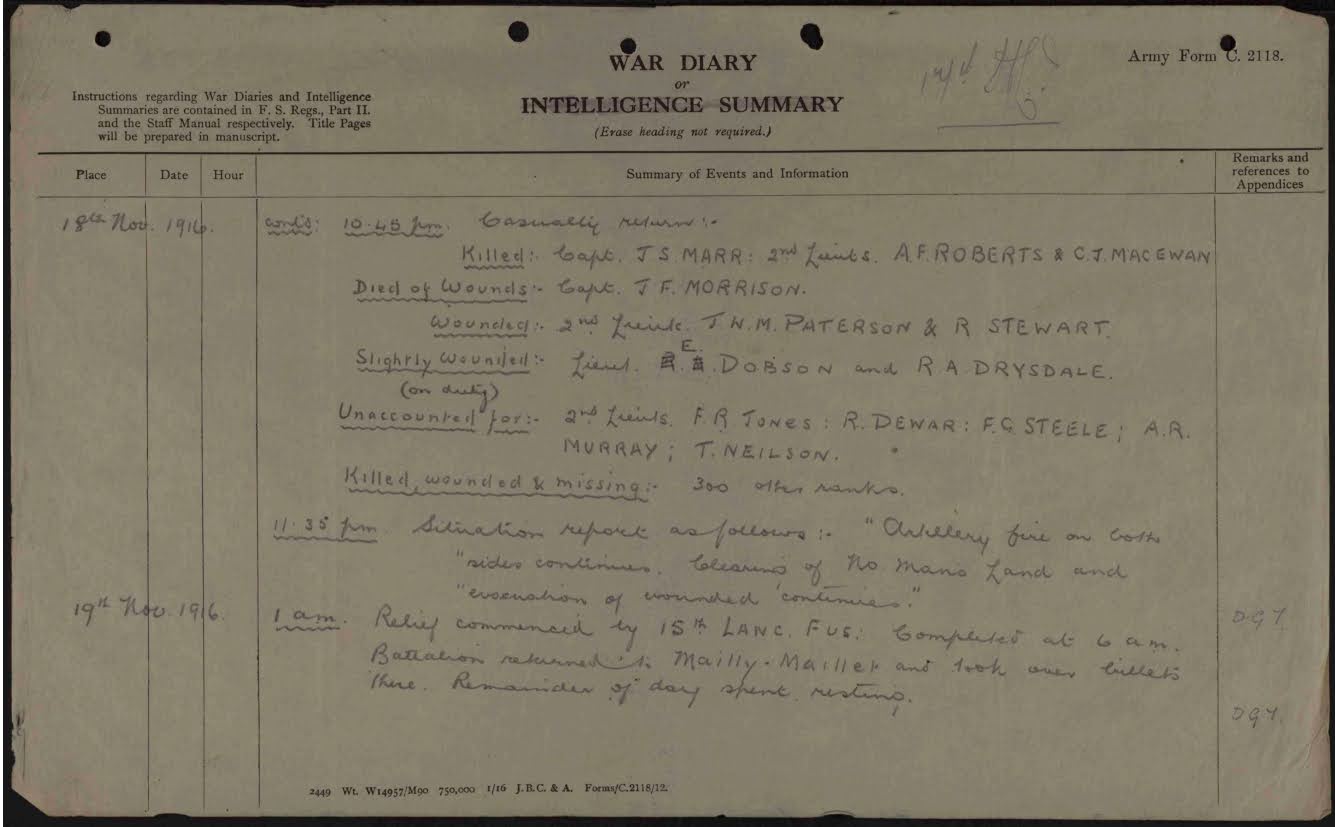 WAR DIARY
or
INTELLIGENCE SUMMARY
(Erase heading not required.)
Army Form C. 2118.
Instructions regarding War Diaries and Intelligence
Summaries are contained in F. S. Regs., Part II.
and the Staff Manual respectively. Title Pages
will be prepared in manuscript.
Place Date Hour Summary of Events and Information Remarks and references to Appendices
18th Nov. 1916. contd: 10.45 pm. Casualty return:-
Killed:- Capt. J S. MARR: 2nd Lieuts. A.F. ROBERTS & C.J. MACEWAN
Died of Wounds:- Capt. J F. MORRISON.
Wounded:- 2nd Lieuts. J.N.M. PATERSON & R STEWART.
Slightly wounded:- Lieut. E. DOBSON and R.A. DRYSDALE.
(on duty)
Unaccounted for:- 2nd Lieuts. F.R JONES: R. DEWAR: F.G. STEELE; A.R.
MURRAY; T. NEILSON.
Killed, wounded & missing:- 300 other ranks.
11.35 pm. Situation report as follows:- "Artillery fire on both
"sides continues. Clearing of No Mans Land and
"evacuation of wounded continues."
19th Nov. 1916. 1 am. Relief commenced by 15th LANC. FUS: Completed at 6 am. DGY.
Battalion returned to Mailly-Maillet and took over billets
there. Remainder of day spent resting. DGY.
2449 Wt. W14957/M90 750,000 1/16 J.B.C. & A. Forms/C.2118/12.